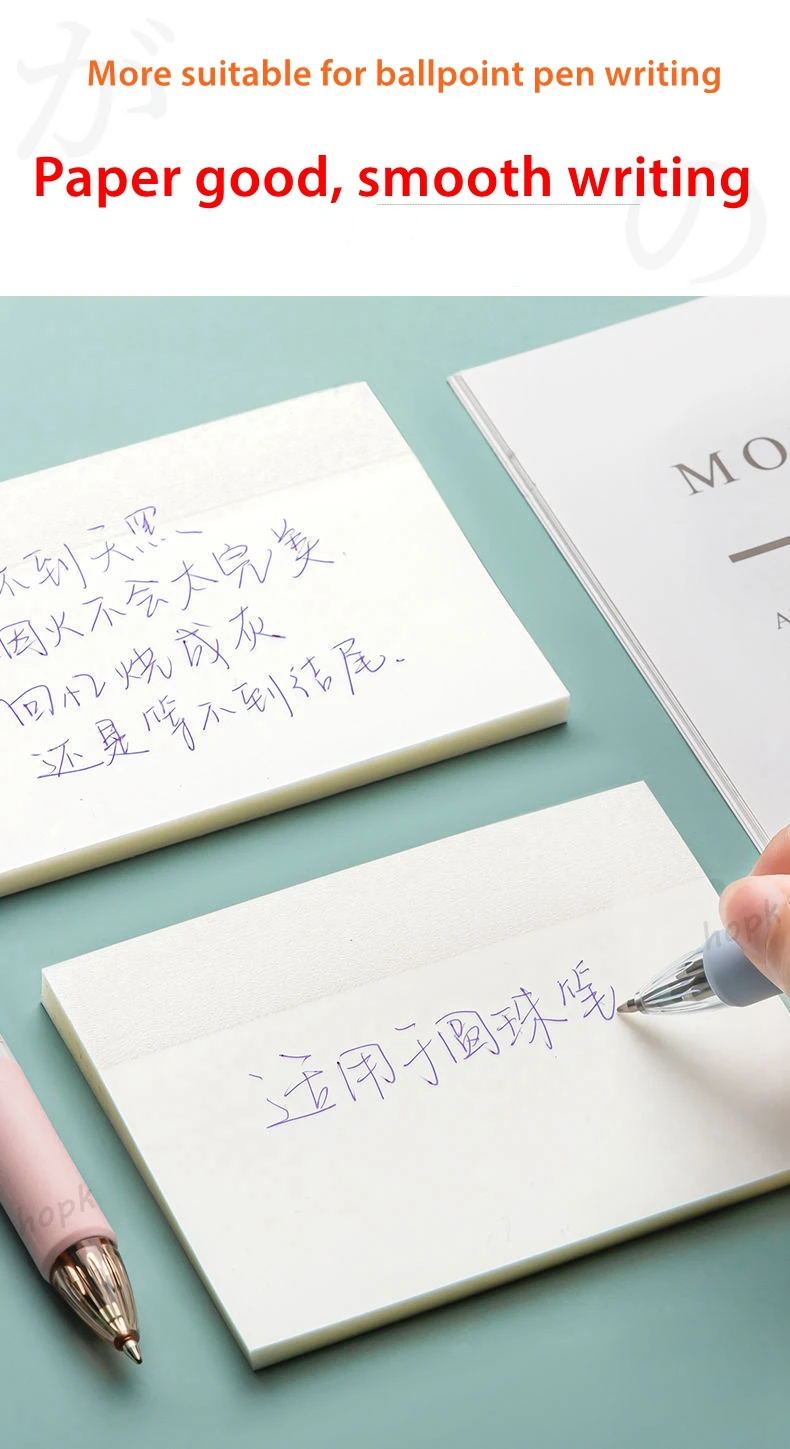 が
More suitable for ballpoint pen writing
Paper good, smooth writing
の
不到天黑
因火不会太完美
回忆烧成灰
还是等不到结尾.
MO
A
适用于圆珠笔
hopk
hopk